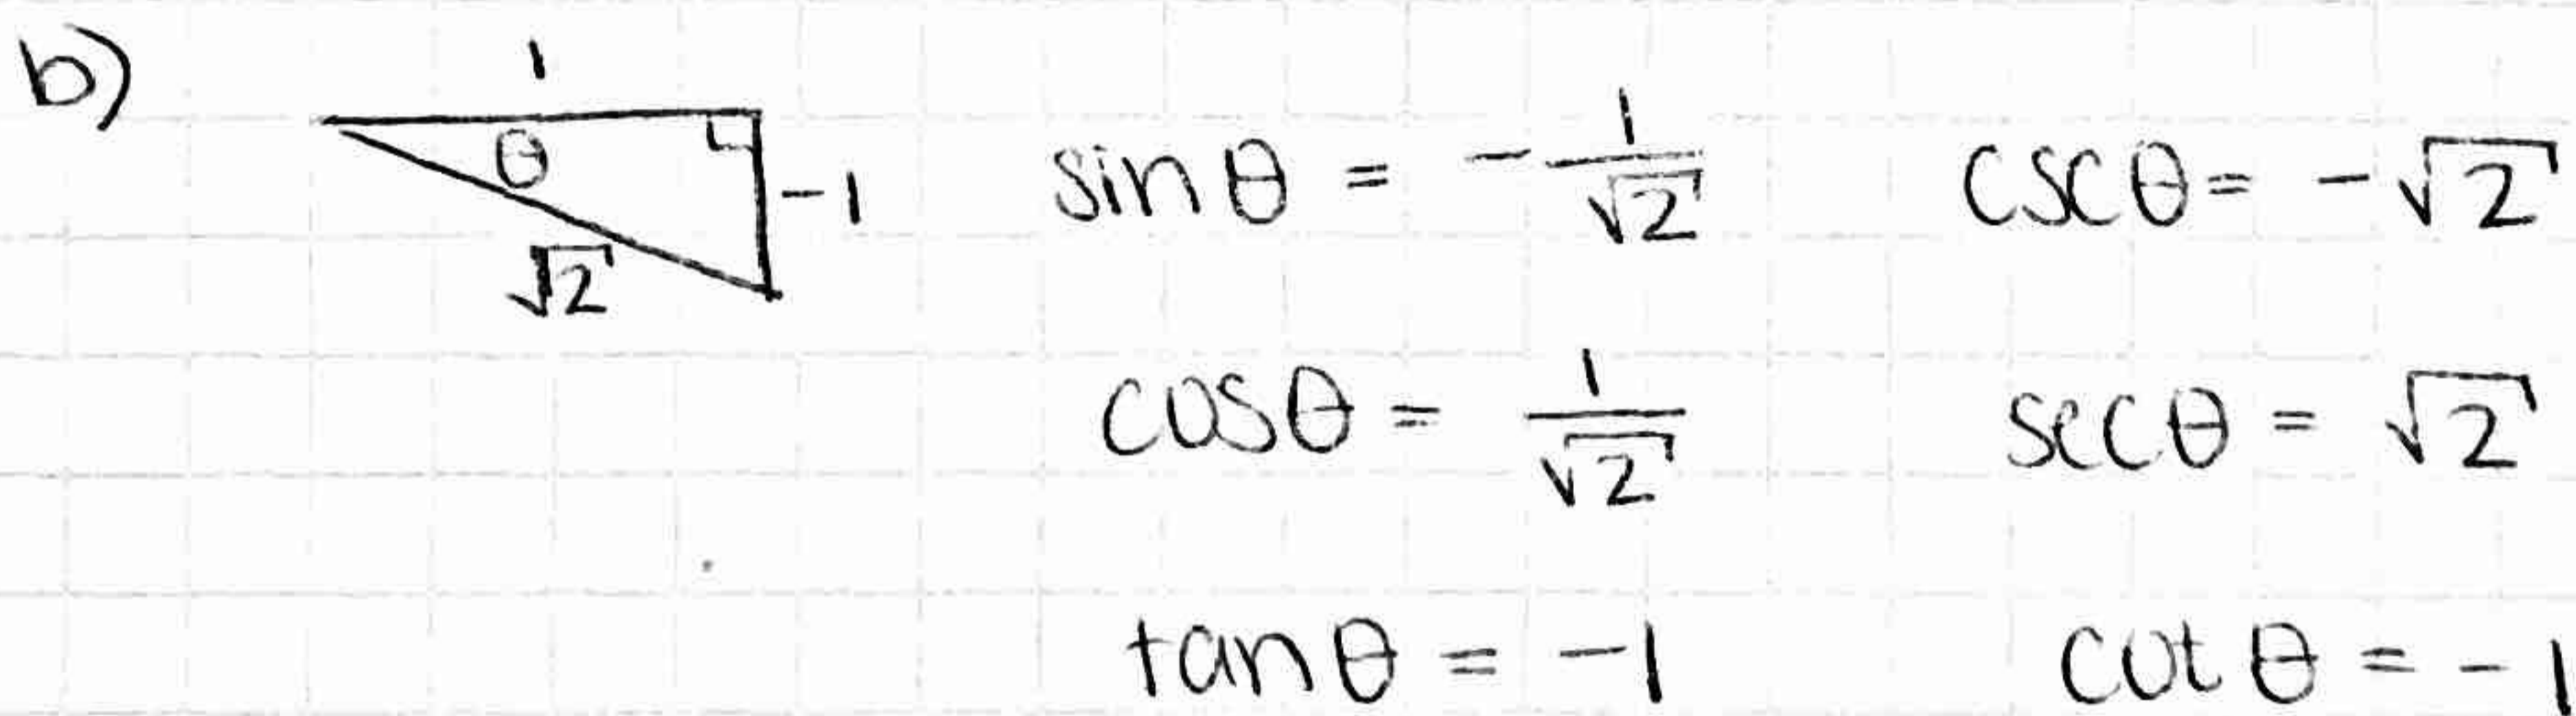 b)
1
θ
-1
√2
sin θ = -1/√2    csc θ = -√2
cos θ = 1/√2    sec θ = √2
tan θ = -1    cot θ = -1